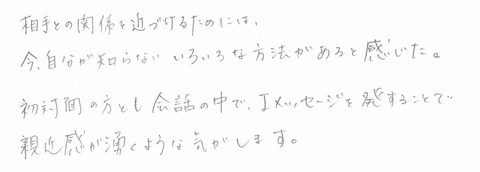 相手との関係を近づけるためには、
今、自分が知らないいろいろな方法があると感じた。
初対面の方とも会話の中で、Iメッセージを発することで
親近感が湧くような気がします。